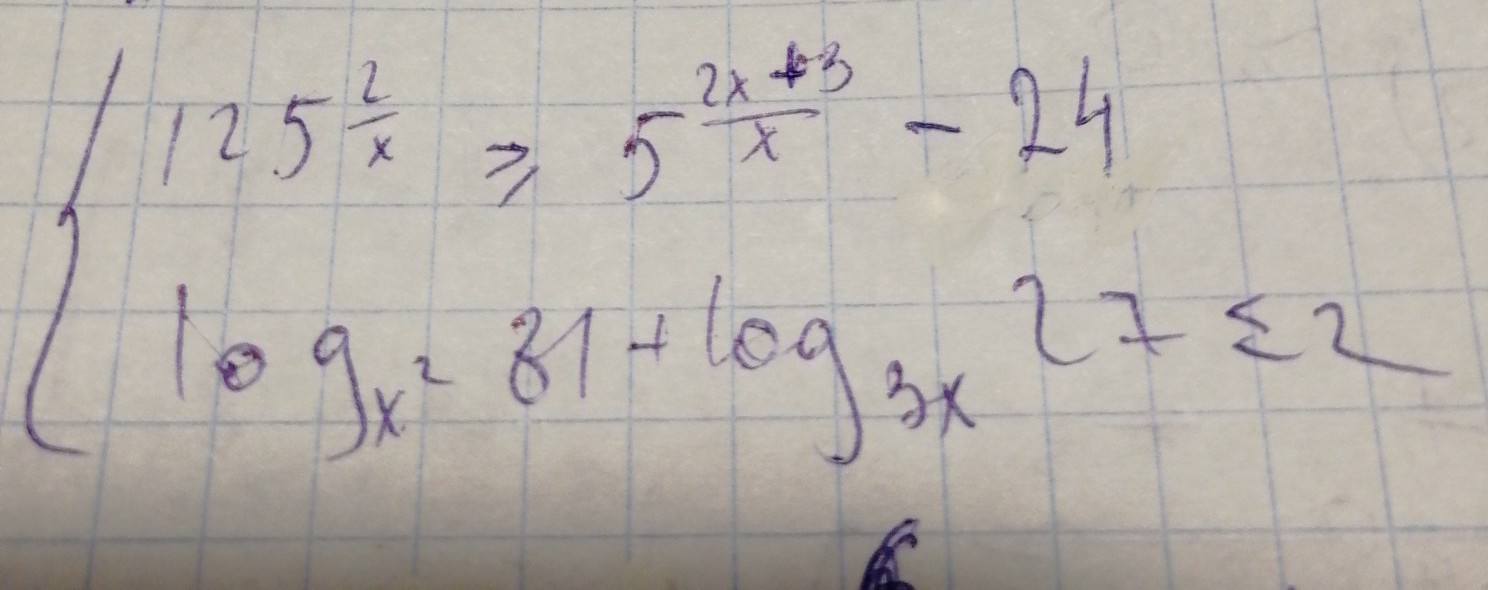 125^{\frac{2}{x}} ≥ 5^{\frac{2x+3}{x}} - 24
log_{x^2} 81 + log_{3x} 27 ≤ 2